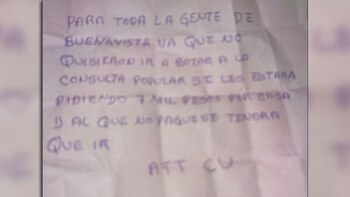 PARA TODA LA GENTE DE
BUENAVISTA YA QUE NO
QUISIERON IR A BOTAR A LA
CONSULTA POPULAR SE LES ESTARA
PIDIENDO 7 MIL PESOS POR CASA
Y AL QUE NO PAGUE SE TENDRA
QUE IR
ATT CU